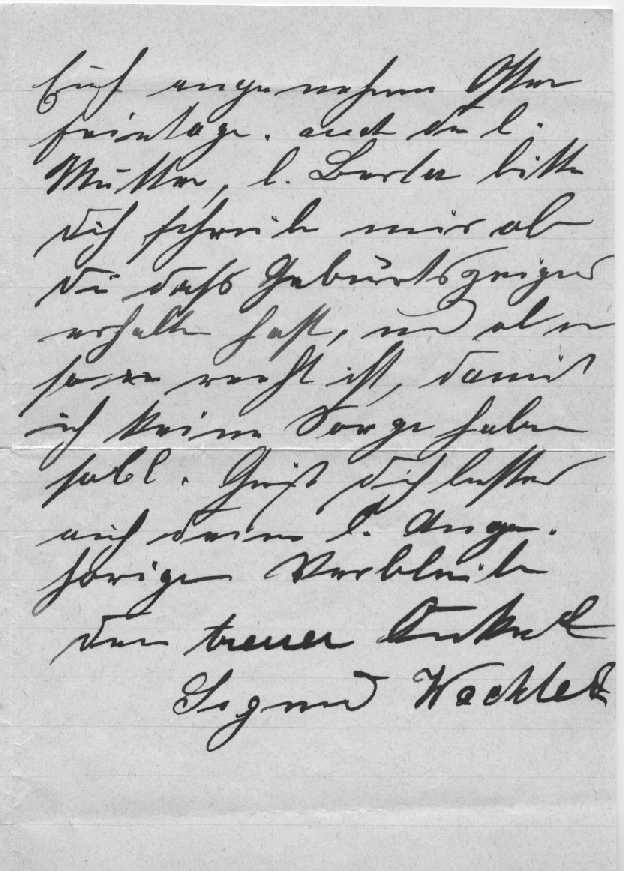 Euch angenehme Oster
feiertage. auch die l.
Mutter, l. Berta bitte
dich schreibe mir ob
du dass Geburtszeugnis
erhalten hast, und ob er
so recht ist, damit
ich keine Sorge haben
soll. Grüßt dich bestens
auch deine l. Ange-
hörigen Verbleibe
dein treuer Onkel
Sigmund Wachtel